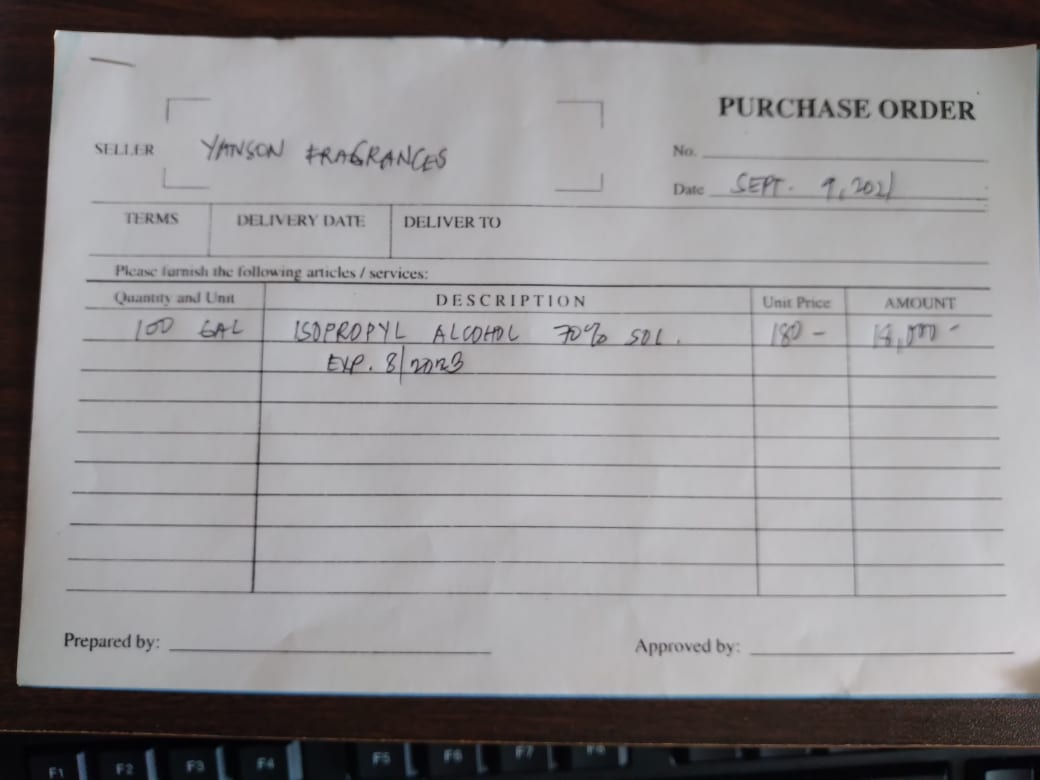 PURCHASE ORDER
SELLER YANSON FRAGRANCES
No.
Date SEPT. 9, 2021
TERMS DELIVERY DATE DELIVER TO
Please furnish the following articles / services:
Quantity and Unit DESCRIPTION Unit Price AMOUNT
100 GAL ISOPROPYL ALCOHOL 70% SOL. 180- 18,000-
EXP. 8/2023
Prepared by: Approved by:
F1 F2 F3 F4 F5 F6 F7 F8